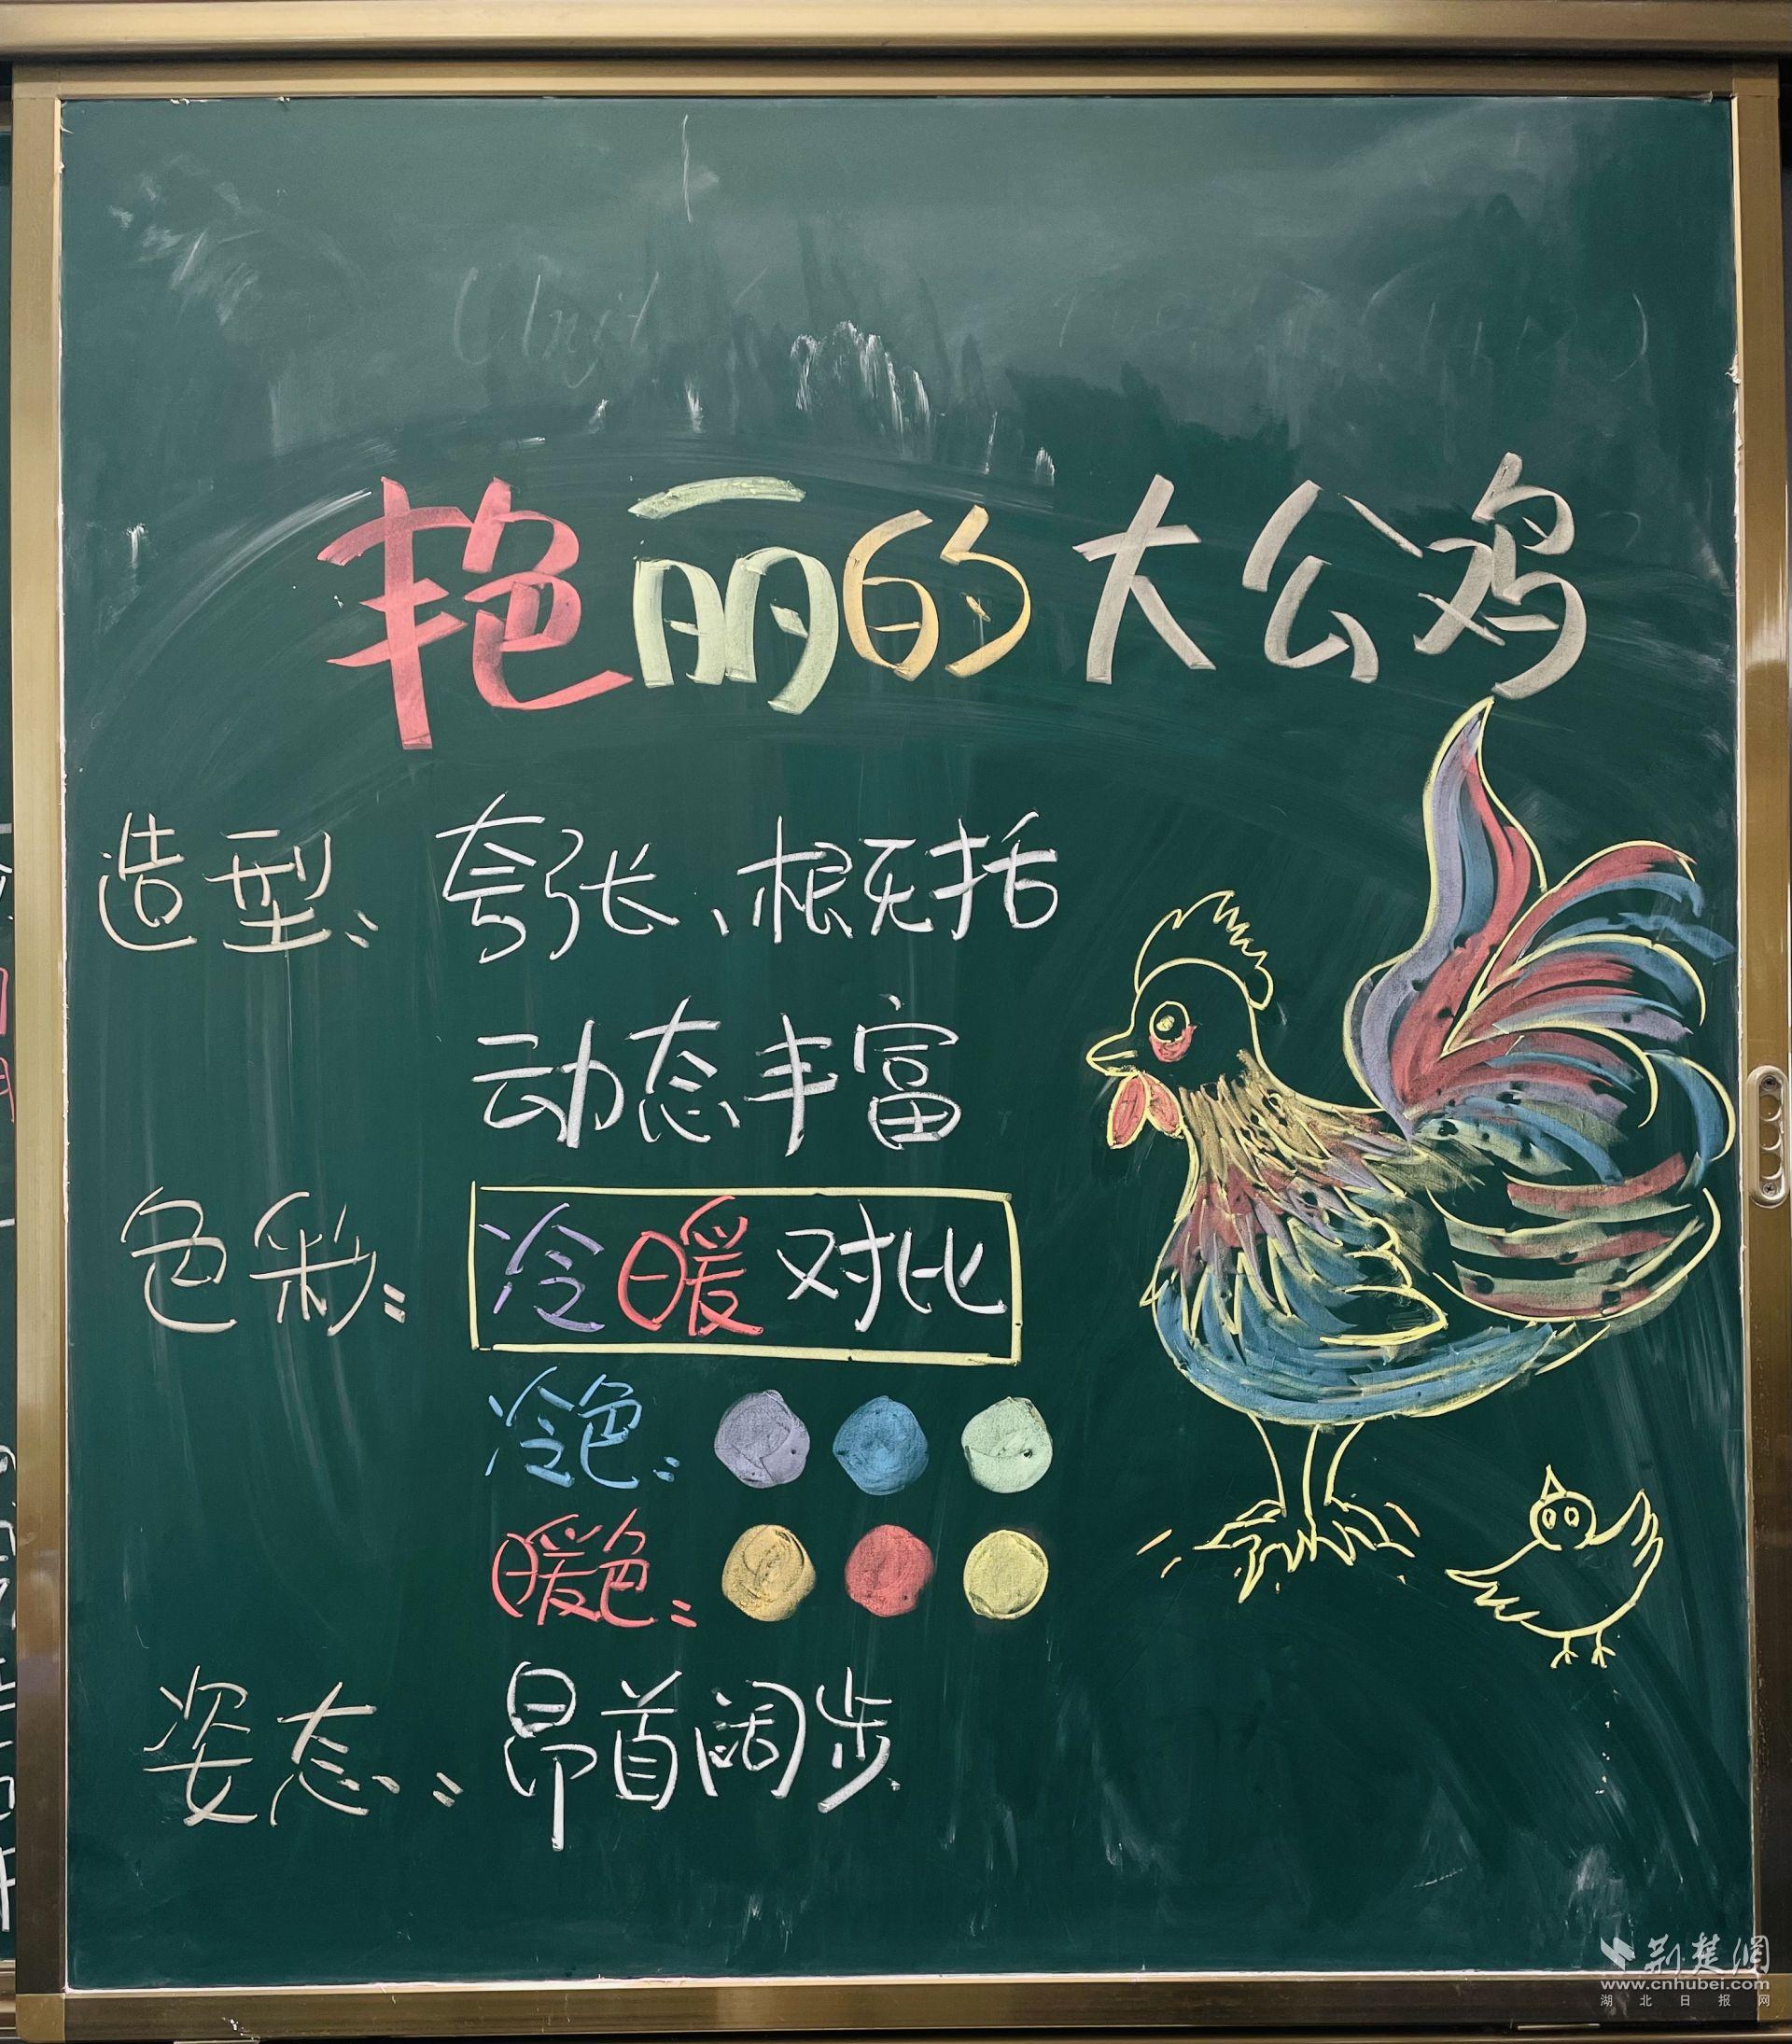 艳丽的大公鸡
造型: 夸张、概括
动态丰富
色彩: 冷暖对比
冷色:
暖色:
姿态: 昂首阔步
荆楚网
www.cnhubei.com
湖北日报网